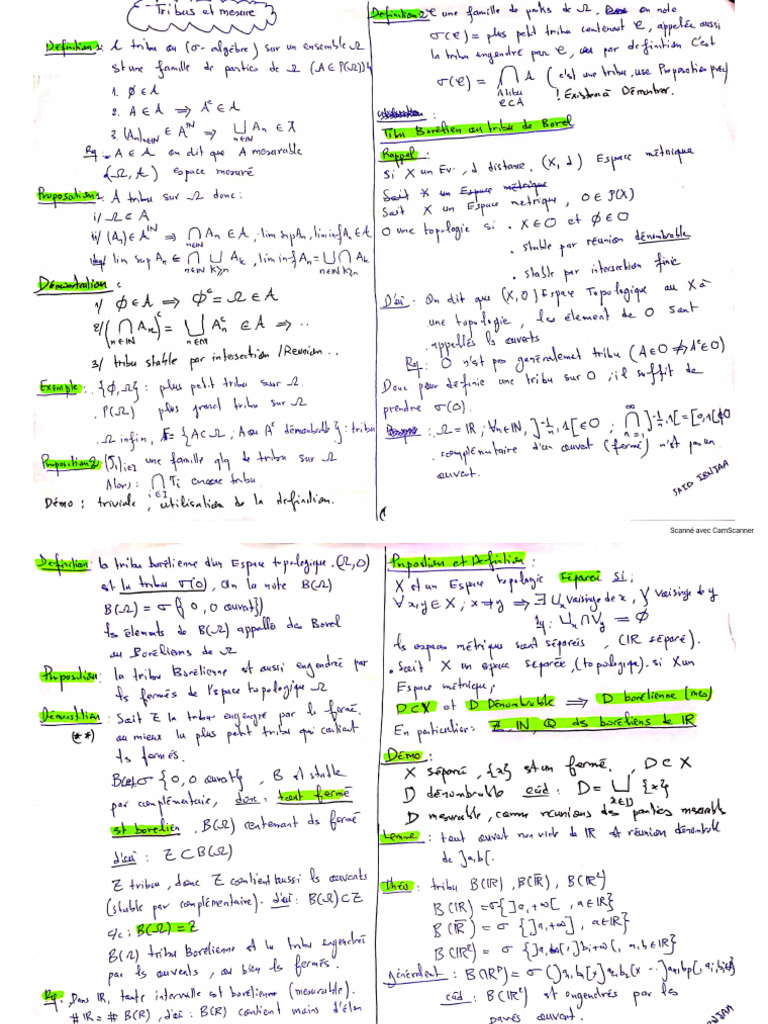 Tribus et mesure
Definition 1: A tribu ou (σ-algèbre) sur un ensemble Ω
est une famille de parties de Ω (A⊂P(Ω))
1. ∅ ∈ A
2. A ∈ A ⟹ Aᶜ ∈ A
3. (An)n∈IN ∈ A^IN ⟹ ⋃ An ∈ A
n∈IN
Rq: A ∈ A on dit que A mesurable
(Ω, A) Espace mesuré
Proposition: A tribu sur Ω donc:
i/ Ω ∈ A
ii/ (An) ∈ A^IN ⟹ ⋂ An ∈ A, lim sup An, lim inf An ∈ A
n∈IN
lim sup An = ⋂ ⋃ Ak, lim inf An = ⋃ ⋂ Ak
n∈IN k≥n n∈IN k≥n
Démonstration:
1/ ∅ ∈ A ⟹ ∅ᶜ = Ω ∈ A
2/ (⋂ An)ᶜ = ⋃ Anᶜ ∈ A ⟹ ..
n∈IN n∈IN
3/ tribu stable par intersection /Reunion ..
Exemple: {∅, Ω} : plus petit tribu sur Ω
P(Ω) plus grand tribu sur Ω.
Ω infin, = {A⊂Ω ; A ou Aᶜ dénombrable} : tribu
Proposition 2: une famille qlq de tribu sur Ω
Alors: ⋂ Ti encore tribu.
i∈I
Démo : triviale, utilisation de la definition.
Definition 2: C une famille de parties de Ω, on note
σ(C) = plus petit tribu contenant C, appelée aussi
la tribu engendré par C, par definition c'est
σ(C) = ⋂ A (c'est une tribu, use Proposition préc)
A tribu
C⊂A ! Existence à Démontrer.
Tribu Borélien ou tribu de Borel
Rappel:
Si X un Ev, d distance, (X, d) Espace métrique
Soit X un Espace métrique
Soit X un Espace metrique, O ∈ P(X)
O une topologie si . X ∈ O et ∅ ∈ O
. stable par réunion dénombrable
. stable par intersection finie
D'où: On dit que (X, O) Espace Topologique ou X a
une topologie, les élement de O sont
appellés les ouverts
Rq: O n'est pas généralement tribu (A∈O ⇏ Aᶜ∈O)
Donc pour définie une tribu sur O, il suffit de
prendre σ(O).
Ω = IR ; ∀n∈IN, ]-1/n, 1[ ∈ O ; ⋂ ]-1/n, 1[ = [0,1[ ∉ O
. complémentaire d'un ouvert (fermé) n'est pas un
ouvert.
SAID
Scanné avec CamScanner
Definition: la tribu borélienne d'un Espace topologique, (Ω, O)
est la tribu σ(O), On la note B(Ω)
B(Ω) = σ({O, O ouvert})
les élements de B(Ω) appellés des Borel
ou Boréliens de Ω
Proposition: la tribu Borélienne est aussi engendré par
les fermés de l'espace topologique Ω
Démonstration: Soit Z la tribu engengré par le fermé.
(**) au mieux la plus petit tribu qui contient
les fermés.
B(Ω)=σ {O, O ouvert}, B est stable
par complémentaire, donc: tout fermé
est borélien, B(Ω) contenant des fermé
d'où: Z⊂B(Ω)
Z tribu, donc Z contient aussi les ouverts
(stable par complémentaire). d'où: B(Ω)⊂Z
c/c: B(Ω) = Z
B(Ω) tribu Borélienne est la tribu engendrés
par les ouverts, ou bien les fermés.
Rq. Dans IR, toute intervalle est borélienne (mesurable).
# IR = # B(R), d'où: B(R) contient moins d'élem
Proposition et Definition:
X est un Espace topologie Séparé si;
∀ x,y∈X ; x≠y ⟹ ∃ Ux voisinge de x, Vy voisinge de y
tq: Ux ∩ Vy = ∅
les espaces métrique sont séparés, (IR séparé).
. Soit X un espace séparée, (topologique), si X un
Espace métrique;
D⊂X et D Dénombrable ⟹ D borélienne (mes)
En particulier: Z, IN, Q des boréliens de IR
Démo:
X séparé, {x} est un fermé, D⊂X
D dénombrable càd: D = ⋃ {x}
x∈D
D mesurable, comme réunions des parties mesurable
Lemme: tout ouvert non vide de IR est réunion dénombrable
de ]a,b[.
Théo: tribu B(IR), B(IR̅), B(IR²)
B(IR) = σ{]a,+∞[, a∈IR}
B(IR̅) = σ {]a,+∞], a∈IR}
génerálement:
càd: B(IR²) est engendrés par les
pavés ouvert.